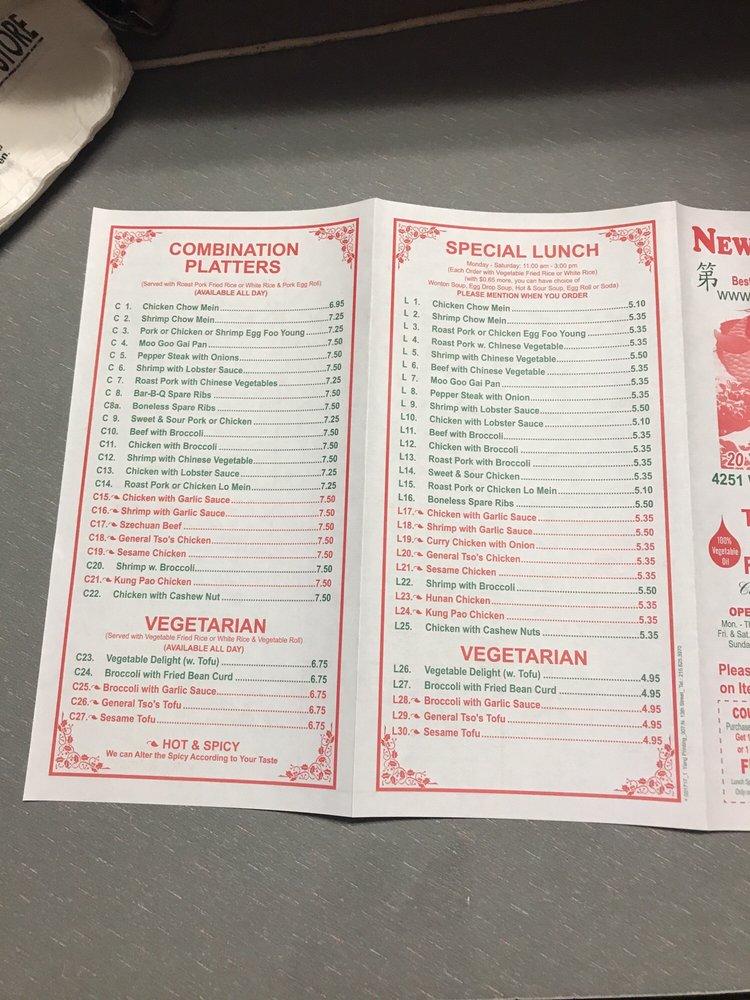 STORE
en.
COMBINATION
PLATTERS
(Served with Roast Pork Fried Rice or White Rice & Pork Egg Roll)
(AVAILABLE ALL DAY)
C 1. Chicken Chow Mein 6.95
C 2. Shrimp Chow Mein 7.25
C 3. Pork or Chicken or Shrimp Egg Foo Young 7.25
C 4. Moo Goo Gai Pan 7.50
C 5. Pepper Steak with Onions 7.50
C 6. Shrimp with Lobster Sauce 7.50
C 7. Roast Pork with Chinese Vegetables 7.25
C 8. Bar-B-Q Spare Ribs 7.50
C8a. Boneless Spare Ribs 7.50
C 9. Sweet & Sour Pork or Chicken 7.25
C10. Beef with Broccoli 7.50
C11. Chicken with Broccoli 7.50
C12. Shrimp with Chinese Vegetable 7.50
C13. Chicken with Lobster Sauce 7.25
C14. Roast Pork or Chicken Lo Mein 7.25
C15. Chicken with Garlic Sauce 7.50
C16. Shrimp with Garlic Sauce 7.50
C17. Szechuan Beef 7.50
C18. General Tso's Chicken 7.50
C19. Sesame Chicken 7.50
C20. Shrimp w. Broccoli 7.50
C21. Kung Pao Chicken 7.50
C22. Chicken with Cashew Nut 7.50
VEGETARIAN
(Served with Vegetable Fried Rice or White Rice & Vegetable Roll)
(AVAILABLE ALL DAY)
C23. Vegetable Delight (w. Tofu) 6.75
C24. Broccoli with Fried Bean Curd 6.75
C25. Broccoli with Garlic Sauce 6.75
C26. General Tso's Tofu 6.75
C27. Sesame Tofu 6.75
HOT & SPICY
We can Alter the Spicy According to Your Taste
SPECIAL LUNCH
Monday - Saturday: 11:00 am - 3:00 pm
(Each Order with Vegetable Fried Rice or White Rice)
(with $0.65 more, you can have choice of
Wonton Soup, Egg Drop Soup, Hot & Sour Soup, Egg Roll or Soda)
PLEASE MENTION WHEN YOU ORDER
L 1. Chicken Chow Mein 5.10
L 2. Shrimp Chow Mein 5.35
L 3. Roast Pork or Chicken Egg Foo Young 5.35
L 4. Roast Pork w. Chinese Vegetable 5.35
L 5. Shrimp with Chinese Vegetable 5.50
L 6. Beef with Chinese Vegetable 5.35
L 7. Moo Goo Gai Pan 5.35
L 8. Pepper Steak with Onion 5.35
L 9. Shrimp with Lobster Sauce 5.50
L10. Chicken with Lobster Sauce 5.10
L11. Beef with Broccoli 5.35
L12. Chicken with Broccoli 5.35
L13. Roast Pork with Broccoli 5.35
L14. Sweet & Sour Chicken 5.35
L15. Roast Pork or Chicken Lo Mein 5.10
L16. Boneless Spare Ribs 5.50
L17. Chicken with Garlic Sauce 5.35
L18. Shrimp with Garlic Sauce 5.50
L19. Curry Chicken with Onion 5.35
L20. General Tso's Chicken 5.35
L21. Sesame Chicken 5.35
L22. Shrimp with Broccoli 5.50
L23. Hunan Chicken 5.35
L24. Kung Pao Chicken 5.35
L25. Chicken with Cashew Nuts 5.35
VEGETARIAN
L26. Vegetable Delight (w. Tofu) 4.95
L27. Broccoli with Fried Bean Curd 4.95
L28. Broccoli with Garlic Sauce 4.95
L29. General Tso's Tofu 4.95
L30. Sesame Tofu 4.95
NEW
第
Best
www.
20
4251
100%
Vegetable
Oil
OPE
Mon. - Th
Fri. & Sat.
Sunda
Pleas
on Ite
COU
Purchase
Get
or 1
F
Lunch Sp
Only o